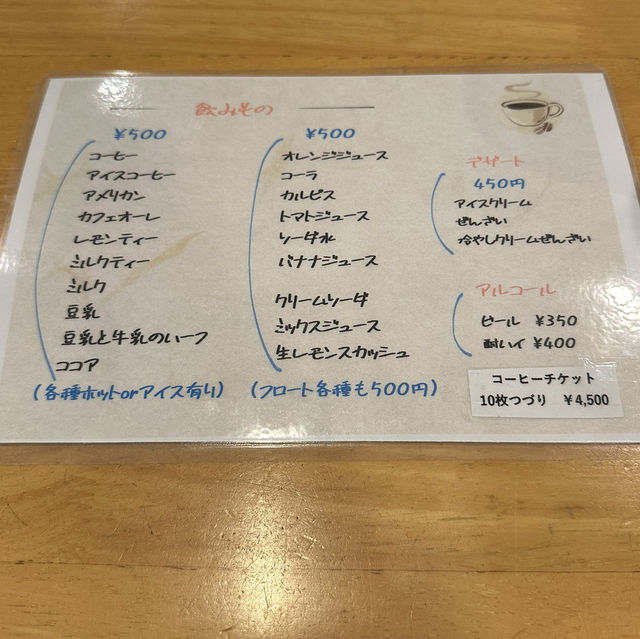 飲みもの
¥500
コーヒー
アイスコーヒー
アメリカン
カフェオーレ
レモンティー
ミルクティー
ミルク
豆乳
豆乳と牛乳のハーフ
ココア
(各種ホットorアイス有り)
¥500
オレンジジュース
コーラ
カルピス
トマトジュース
ソーダ水
バナナジュース
クリームソーダ
ミックスジュース
生レモンスカッシュ
(フロート各種も500円)
デザート
450円
アイスクリーム
ぜんざい
冷やしクリームぜんざい
アルコール
ビール ¥350
酎ハイ ¥400
コーヒーチケット
10枚つづり ¥4,500